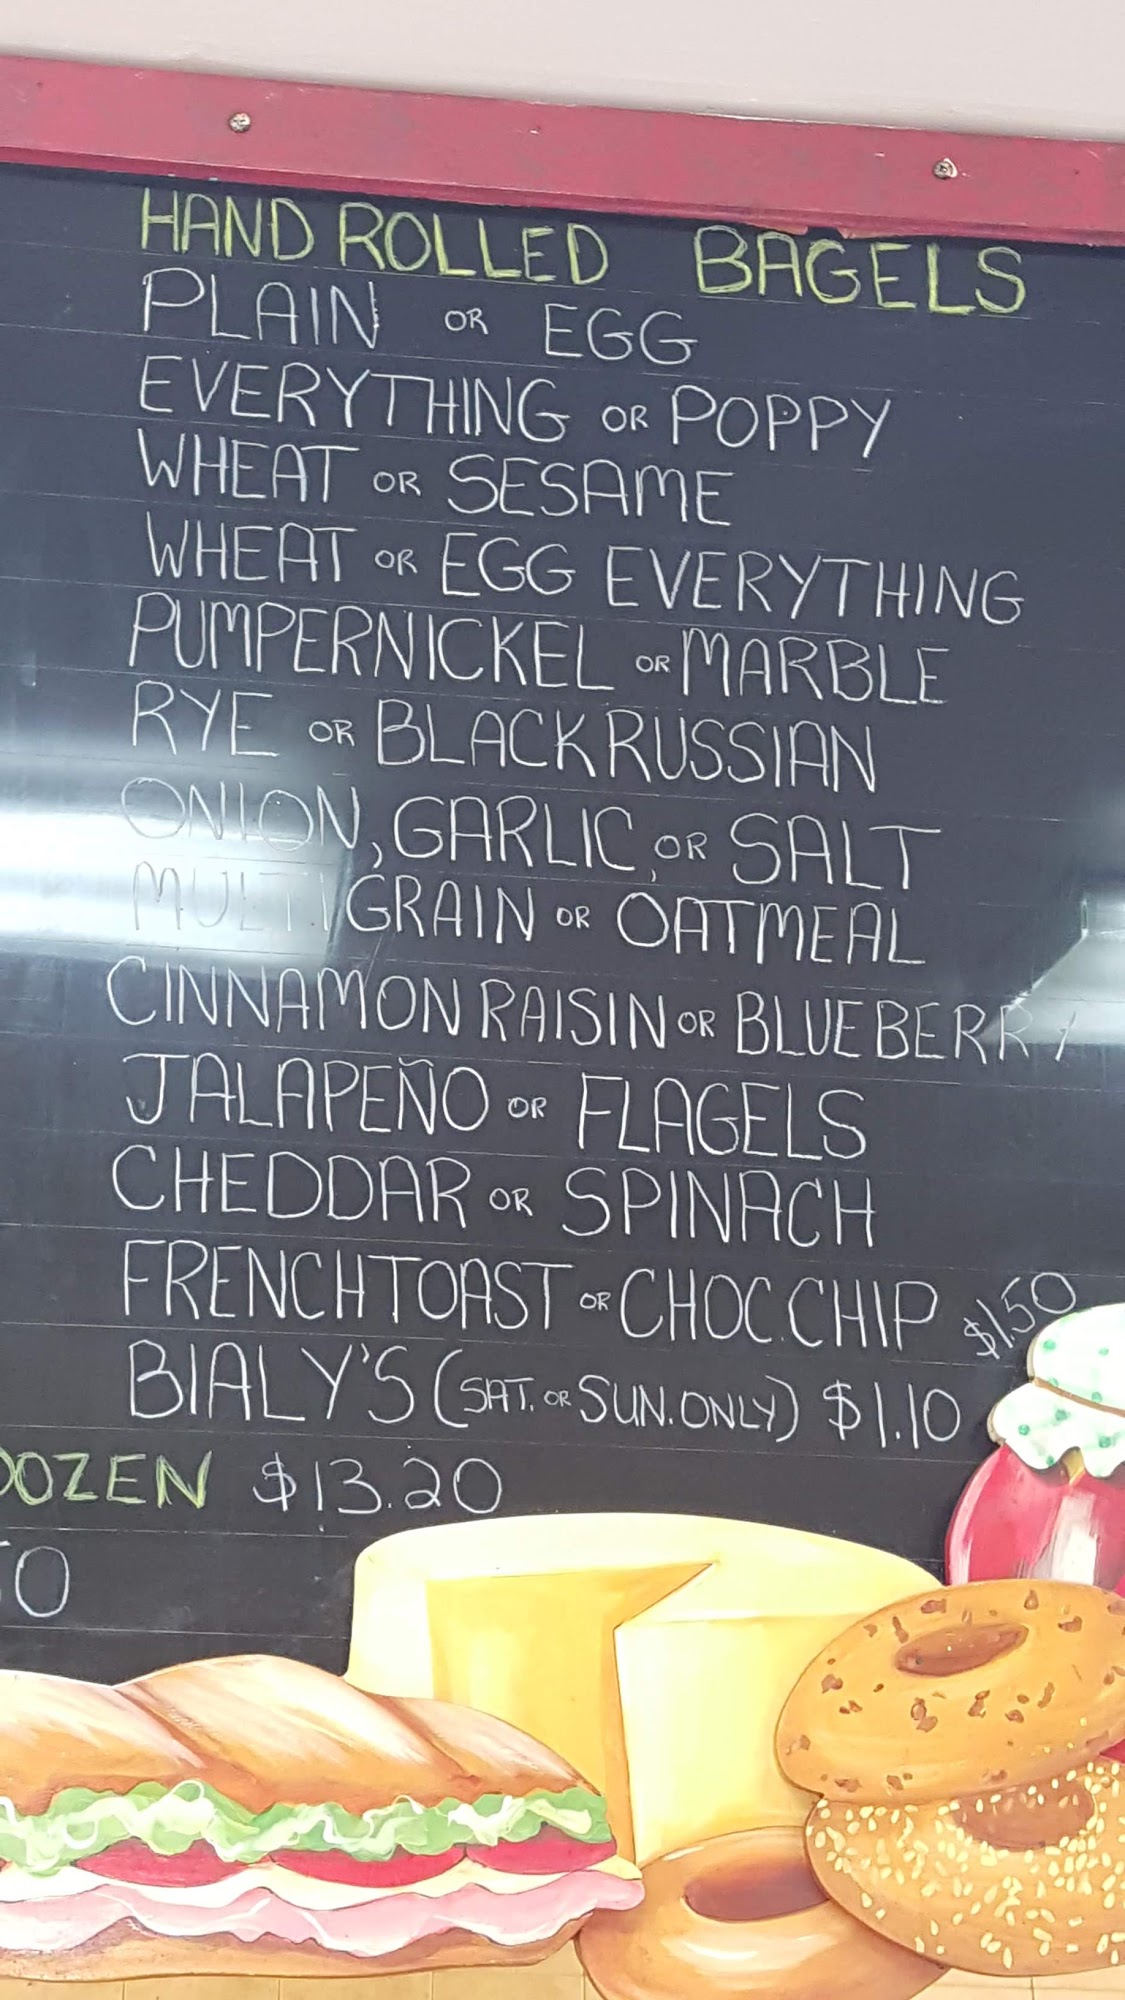 HAND ROLLED BAGELS
PLAIN OR EGG
EVERYTHING OR POPPY
WHEAT OR SESAME
WHEAT OR EGG EVERYTHING
PUMPERNICKEL OR MARBLE
RYE OR BLACK RUSSIAN
ONION, GARLIC, OR SALT
MULTI GRAIN OR OATMEAL
CINNAMON RAISIN OR BLUEBERRY
JALAPEÑO OR FLAGELS
CHEDDAR OR SPINACH
FRENCH TOAST OR CHOC. CHIP $1.50
BIALY'S (SAT. OR SUN. ONLY) $1.10
DOZEN $13.20